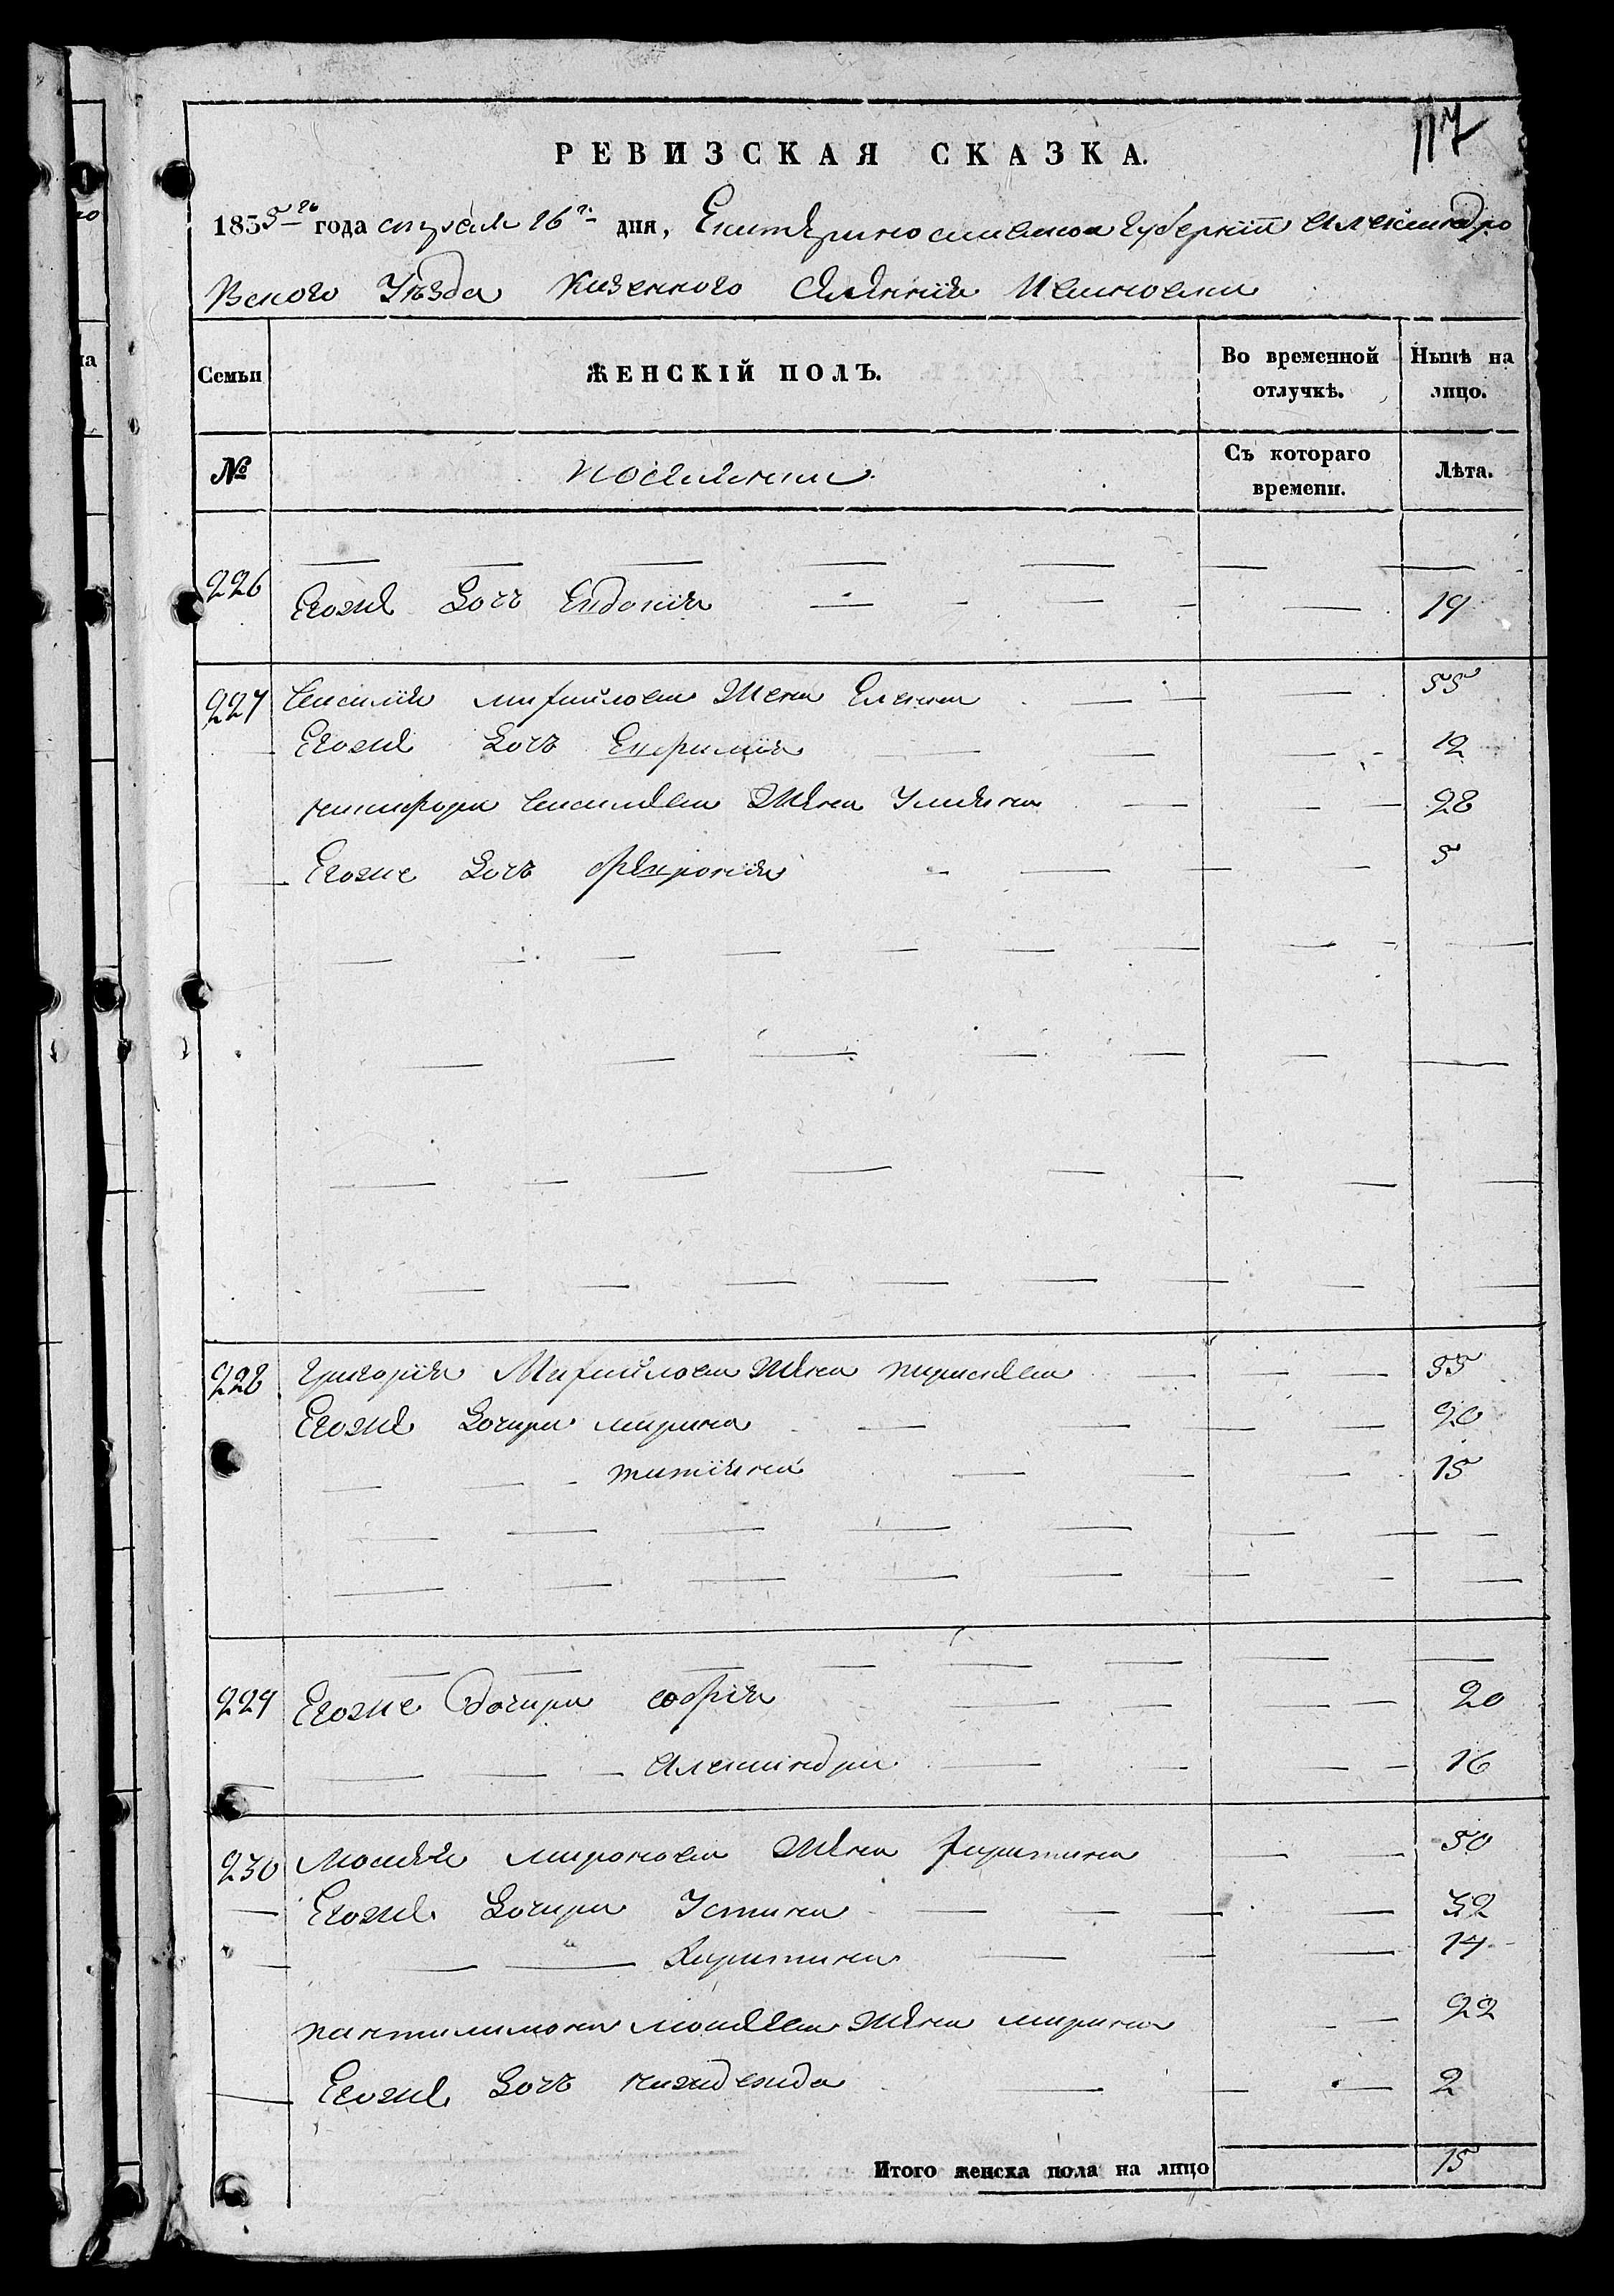 117
РЕВИЗСКАЯ СКАЗКА.
1835го года апреля 26го дня, Екатериносласкоа Губернїи Александро
Вского Уѣзда Казенного Селенiя Ивановки
Семьи ЖЕНСКІЙ ПОЛЪ. Во временной отлучкѣ. Нынѣ на лицо.
№ поселянки Съ котораго времени. Лѣта.
226 Егоже Дочь Евдокия 19
227 Василїя михайлова Жена Елена 55
Егоже Дочь Ефимїя 12
никифора Василева Жена Улияна 28
Егоже Дочь Февронїя 5
228 Григорїя Михайлова Жена параскева 55
Егоже Дочери марина 20
татїяна 15
229 Егоже дочери софия 20
александра 16
230 Мосия миронова Жена харитина 50
Егоже Дочери Устина 32
Харитина 14
пантилимона мосиева Жена марина 22
Егоже Дочь надежда 2
Итого женска пола на лицо 15